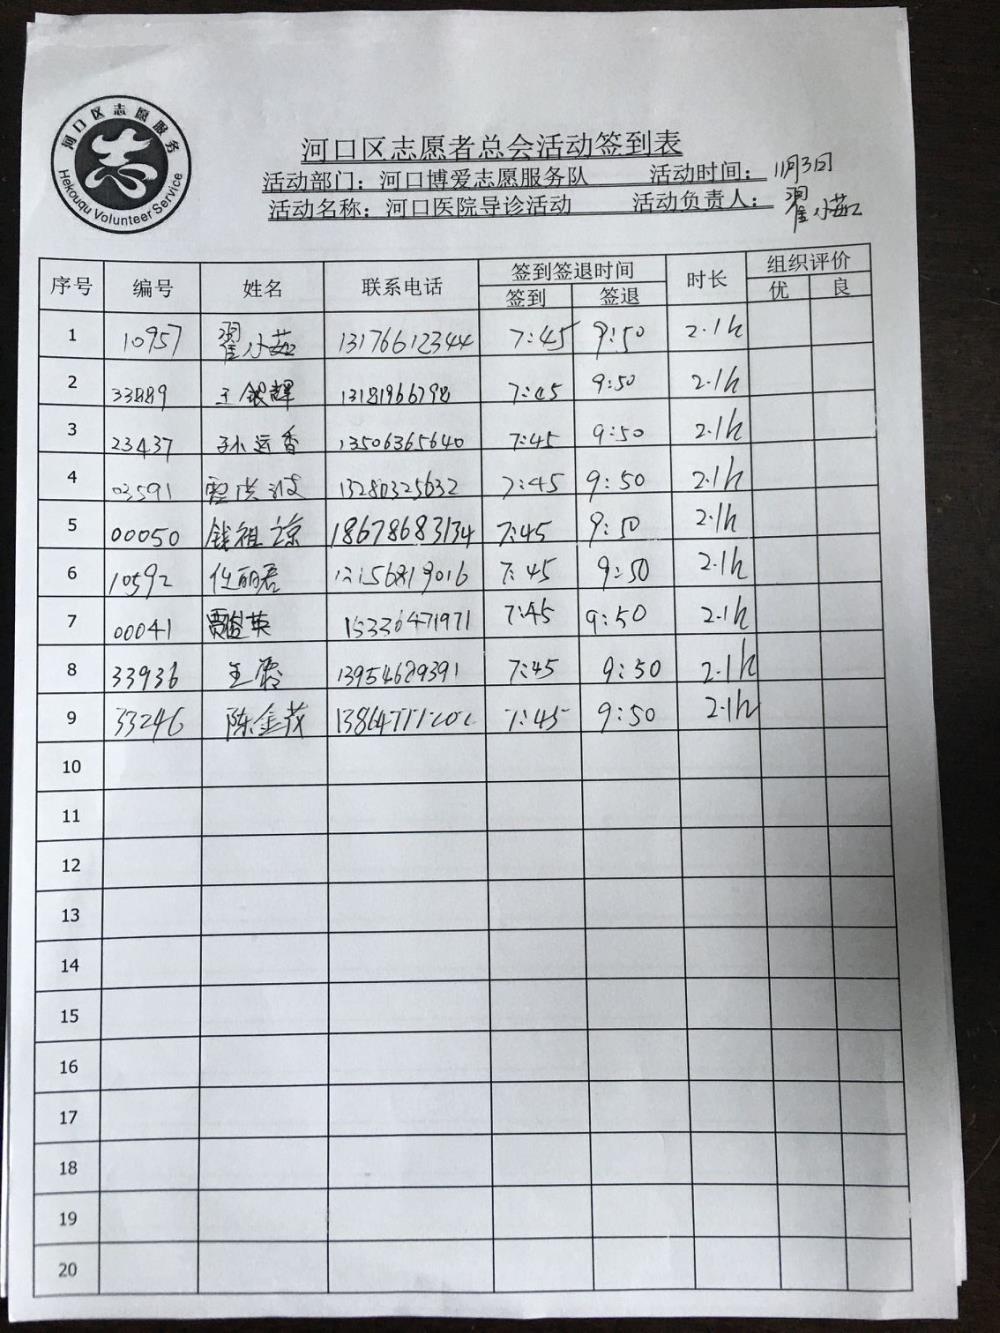 河口区志愿服务
Hekouqu Volunteer Service
河口区志愿者总会活动签到表
活动部门：河口博爱志愿服务队 活动时间：11月3日
活动名称：河口医院导诊活动 活动负责人：翟小茹
序号 编号 姓名 联系电话 签到签退时间 时长 组织评价
签到 签退 优 良
1 10957 翟小茹 13176612344 7:45 9:50 2.1h
2 33889 王银辉 13181966798 7:45 9:50 2.1h
3 23437 孙运香 13506365640 7:45 9:50 2.1h
4 03591 13280325632 7:45 9:50 2.1h
5 00050 钱祖凉 18678683134 7:45 9:50 2.1h
6 10592 任丽君 7:45 9:50 2.1h
7 00041 英 15336471971 7:45 9:50 2.1h
8 33936 王霞 13954629391 7:45 9:50 2.1h
9 33246 陈金茂 7:45 9:50 2.1h
10
11
12
13
14
15
16
17
18
19
20